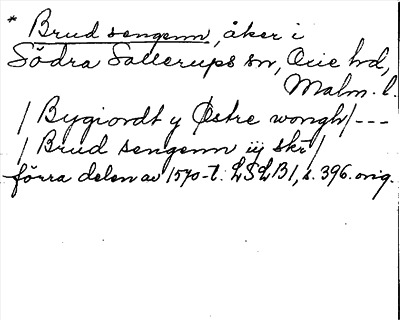 * Brud sengenn, åker i
Södra Sallerups sn, Oxie hd,
Malm. l.
/ Bygiordt y Østre wongh / ---
/ Brud sengenn iij skr /
förra delen av 1570-t. LSLB1, s. 396. orig.